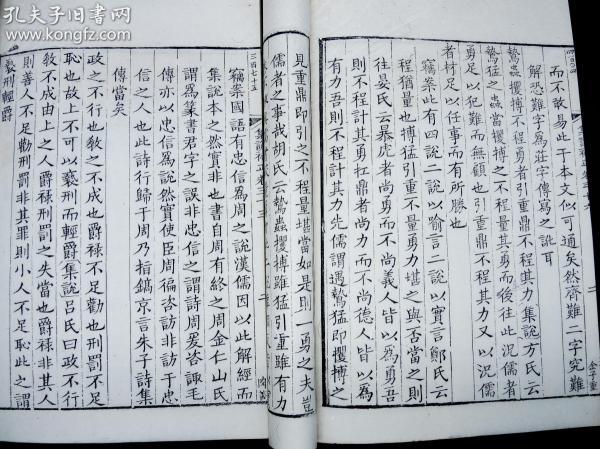 孔夫子旧书网
而不敢易此于本文似可通矣然齊難二字究難
解恐難字爲莊字傳寫之訛耳
鷙蟲攫搏不程勇者引重鼎不程其力集說方氏云
鷙猛之蟲當攫搏之不程量其勇而後往此況儒者
勇足以犯難而無顧也引重鼎不程其力又以況儒
者材足以任事而有所勝也
竊案此有四說二說以喻言二說以實言鄭氏云
程猶量也搏猛引重不量勇力堪之與否當之則
往晏氏云暴虎者尚勇而不尚義人皆以爲勇吾
則不程計其勇扛鼎者尚力而不尚德人皆以爲
有力吾則不程計其力先儒謂遇鷙猛即攫搏之
見重鼎即引之不程量堪當如是則一勇之夫豈
儒者之事哉胡氏云鷙蟲攫搏雖猛引重雖有力
三百七十五
竊案國語有忠信爲周之說漢儒因以此解經而
集說本之然實非也書自周有終之周金仁山氏
謂爲篆書君字之誤非忠信之謂詩周爰咨諏毛
傳亦以忠信爲說然實使臣周徧咨訪非訪于忠
信之人也此詩行歸于周乃指鎬京言朱子詩集
傳當矣
政之不行也敎之不成也爵祿不足勸也刑罰不足
恥也故上不可以褻刑而輕爵集說呂氏曰政不行
敎不成由上之人爵祿刑罰之失當也爵祿非其人
則善人不足勸刑罰非其罪則小人不足恥此之謂
褻刑輕爵